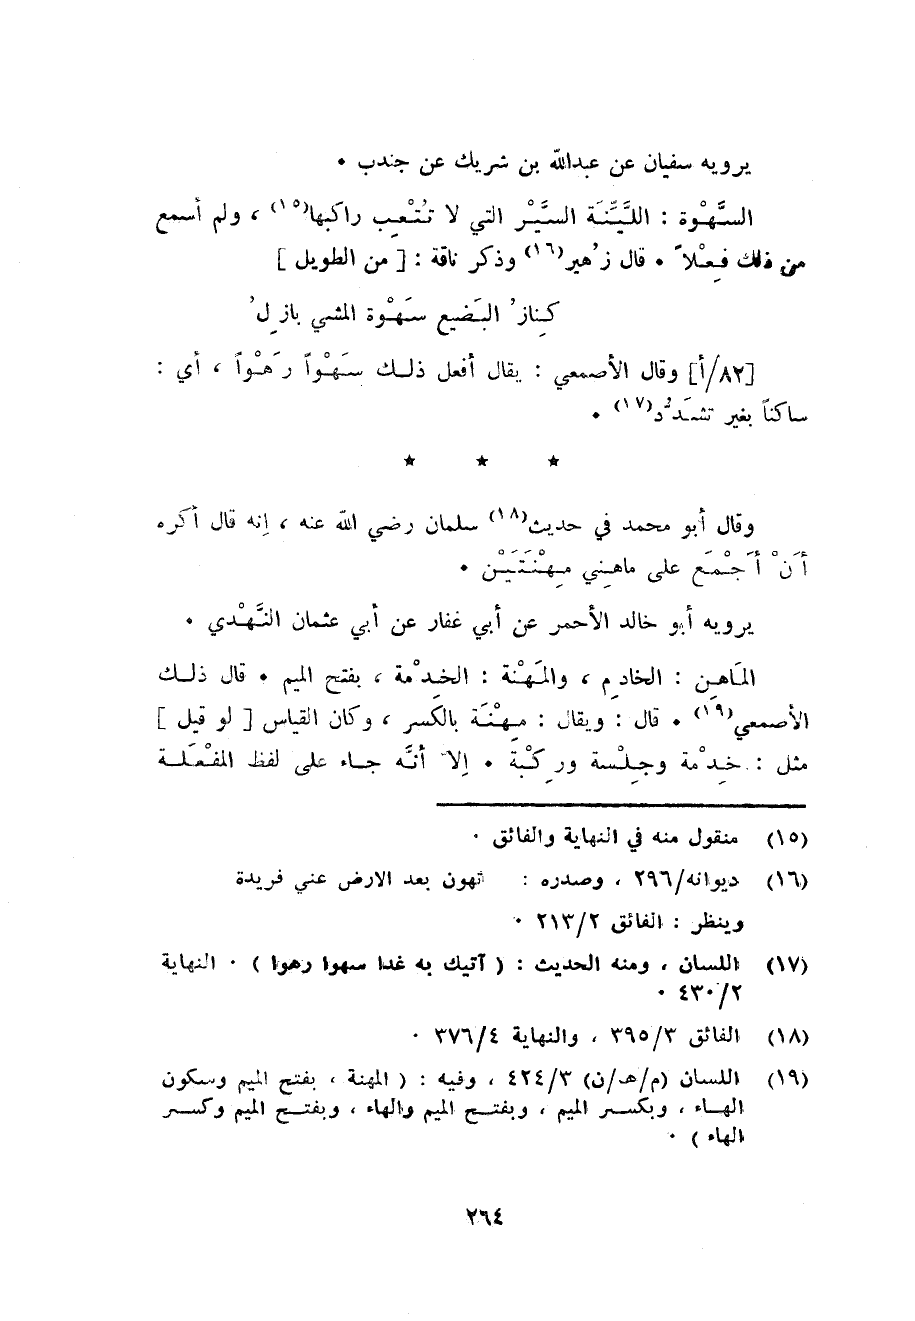 يرويه سفيان عن عبدالله بن شريك عن جندب .
السَّهْوة : اللَّيِّنَة السَّيْر التي لا تُتْعِب راكبها(١٥) ، ولم أسمع
من ذلك فِعْلاً . قال زُهير(١٦) وذكر ناقة : [ من الطويل ]
كِنازُ البَضيع سَهْوة المشي بازِلُ
[٨٢/أ] وقال الأصمعي : يقال أفعل ذلك سَهْواً رَهْواً ، أي :
ساكناً بغير تشَدُّد(١٧) .
★ ★ ★
وقال أبو محمد في حديث(١٨) سلمان رضي الله عنه ، إنه قال أكره
أَنْ أَجْمَع على ماهِني مِهْنَتَيْن .
يرويه أبو خالد الأحمر عن أبي غفار عن أبي عثمان النَّهْدي .
المَاهِن : الخادِم ، والمَهْنة : الخِدْمة ، بفتح الميم . قال ذلك
الأصمعي(١٩) . قال : ويقال : مِهْنَة بالكسر ، وكان القياس [ لو قيل ]
مثل : خِدْمة وجِلْسة ورِكْبة . إلا أنَّه جاء على لفظ المفْعَلة
(١٥) منقول منه في النهاية والفائق .
(١٦) ديوانه/٢٩٦ ، وصدره : تهون بعد الارض عني فريدة
وينظر : الفائق ٢١٣/٢ .
(١٧) اللسان ، ومنه الحديث : ( آتيك به غدا سهوا رهوا ) . النهاية
٤٣٠/٢ .
(١٨) الفائق ٣٩٥/٣ ، والنهاية ٣٧٦/٤ .
(١٩) اللسان (م/هـ/ن) ٤٢٤/٣ ، وفيه : ( المهنة ، بفتح الميم وسكون
الهاء ، وبكسر الميم ، وبفتح الميم والهاء ، وبفتح الميم وكسر
الهاء ) .
٢٦٤